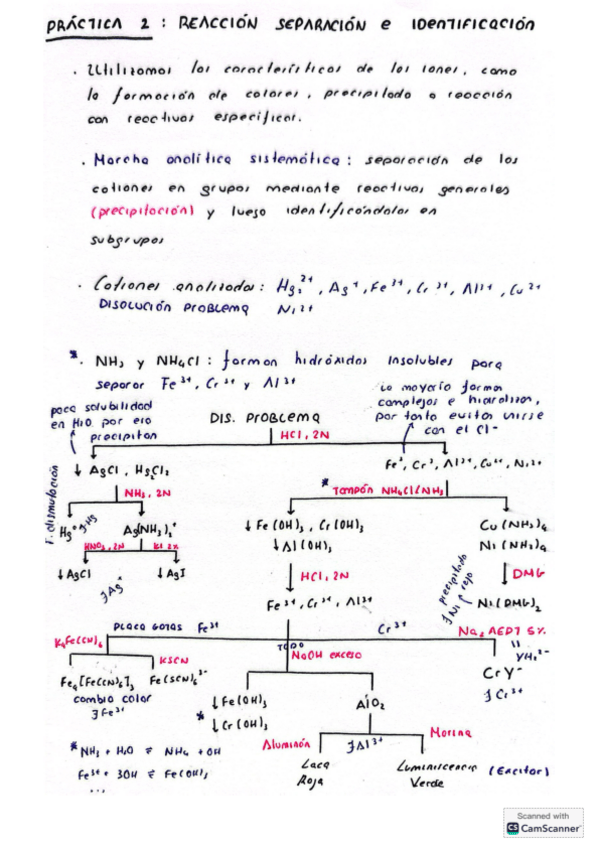 PRÁCTICA 2 : REACCIÓN SEPARACIÓN e IDENTIFICACIÓN
. Utilizamos las características de los iones, como
la formación de colores, precipitado o reacción
con reactivos específicos.
. Marcha analítica sistemática : separación de los
cationes en grupos mediante reactivos generales
(precipitación) y luego identificándolos en
subgrupos
. Cationes analizados : Hg₂²⁺, Ag⁺, Fe³⁺, Cr³⁺, Al³⁺, Cu²⁺
DISOLUCIÓN PROBLEMA Ni²⁺
* . NH₃ y NH₄Cl : forman hidróxidos insolubles para
separar Fe³⁺, Cr³⁺ y Al³⁺
poca solubilidad
en H₂O. por eso
precipitan
La mayoría forman
complejos e hidrolizan,
por tanto evitan unirse
con el Cl⁻
DIS. PROBLEMA
HCl, 2N
↓ AgCl, Hg₂Cl₂
Fe³, Cr³, Al³⁺, Cu²⁺, Ni²⁺
F. dismutación
NH₃, 2N
* Tampón NH₄Cl/NH₃
Hg° ∃Hg
Ag(NH₃)₂⁺
↓ Fe(OH)₃, Cr(OH)₃
↓ Al(OH)₃
Cu(NH₃)₄
Ni(NH₃)₄
HNO₃, 2N
KI 2%
HCl, 2N
precipitado
rojo
∃Ni
DMG
↓ AgCl
↓ AgI
∃Ag⁺
Fe³⁺, Cr³⁺, Al³⁺
Ni(DMG)₂
PLACA GOTAS Fe³⁺
Cr³⁺
Na₂ AEDT 5%.
K₄Fe(CN)₆
KSCN
TODO
NaOH exceso
YH₂²⁻
Fe₄[Fe(CN)₆]₃
Fe(SCN)₆³⁻
CrY⁻
cambio color
∃Fe³⁺
∃Cr³⁺
↓ Fe(OH)₃
* ↓ Cr(OH)₃
AlO₂
Aluminón
∃Al³⁺
Morina
Laca
Roja
Luminiscencia (Excitar)
Verde
* NH₃ + H₂O ⇌ NH₄ + OH
Fe³⁺ + 3OH ⇌ Fe(OH)₃
...
Scanned with
CS CamScanner